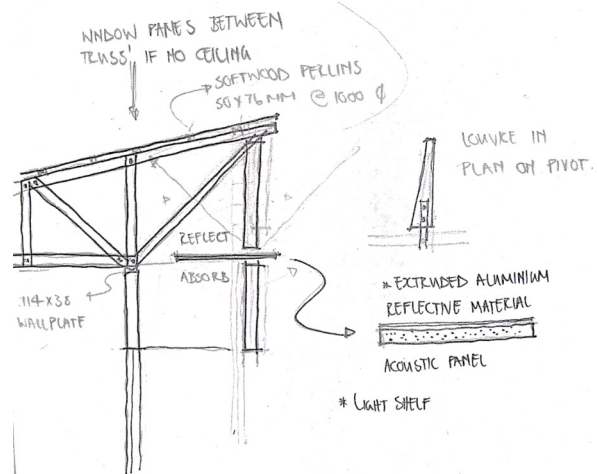 WINDOW PANES BETWEEN
TRUSS' IF NO CEILING
SOFTWOOD PERLINS
50X76MM @ 1000 ¢
LOUVRE IN
PLAN ON PIVOT.
REFLECT
ABSORB
114X38
WALLPLATE
* EXTRUDED ALUMINIUM
REFLECTIVE MATERIAL
ACOUSTIC PANEL
* LIGHT SHELF